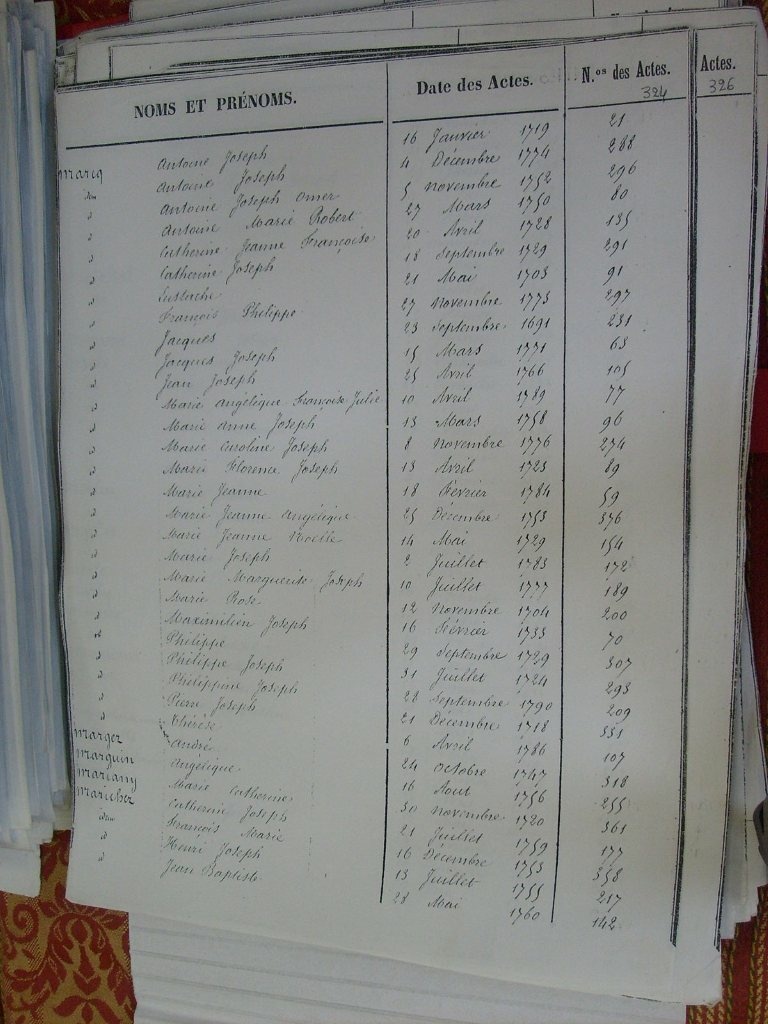 NOMS ET PRÉNOMS. Date des Actes. N.os des Actes. 324 Actes. 326
Marcq Antoine Joseph 16 Janvier 1719 21
idem Antoine Joseph 4 Décembre 1774 288
d Antoine Joseph Omer 5 Novembre 1752 296
d Antoine Marie Robert 27 Mars 1750 80
d Catherine Jeanne Françoise 20 Avril 1728 135
d Catherine Joseph 18 Septembre 1729 291
d Eustache 21 Mai 1703 91
d François Philippe 27 Novembre 1773 297
d Jacques 23 Septembre 1691 231
d Jacques Joseph 15 Mars 1771 63
d Jean Joseph 25 Avril 1766 105
d Marie Angélique Françoise Julie 10 Avril 1789 77
d Marie Anne Joseph 13 Mars 1758 96
d Marie Caroline Joseph 8 Novembre 1776 274
d Marie Florence Joseph 13 Avril 1723 89
d Marie Jeanne 18 Février 1784 59
d Marie Jeanne Angélique 25 Décembre 1753 376
d Marie Jeanne Noelle 14 Mai 1729 154
d Marie Joseph 2 Juillet 1783 172
d Marie Marguerite Joseph 10 Juillet 1777 189
d Marie Rose 12 Novembre 1704 200
d Maximilien Joseph 16 Février 1733 70
d Philippe 29 Septembre 1729 307
d Philippe Joseph 31 Juillet 1724 293
d Philippine Joseph 28 Septembre 1790 209
d Pierre Joseph 21 Décembre 1718 331
d Thérèse 6 Avril 1786 107
Marger André 24 Octobre 1747 318
Marquin Angélique 16 Aout 1756 255
Mariany Marie Catherine 30 Novembre 1720 361
Maricher Catherine Joseph 21 Juillet 1759 177
idem François Marie 16 Décembre 1753 338
d Henri Joseph 13 Juillet 1755 217
d Jean Baptiste 28 Mai 1760 142